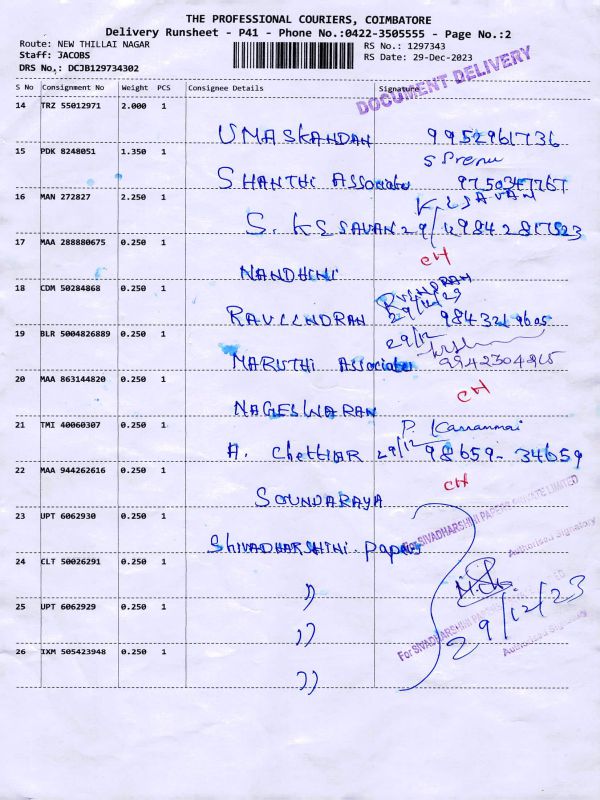 THE PROFESSIONAL COURIERS, COIMBATORE
Delivery Runsheet - P41 - Phone No.:0422-3505555 - Page No.:2
Route: NEW THILLAI NAGAR
RS No.: 1297343
Staff: JACOBS
RS Date: 29-Dec-2023
DRS No.: DCJB129734302
DOCUMENT DELIVERY
S No Consignment No Weight PCS Consignee Details Signature
14 TRZ 55012971 2.000 1
UMASKANDAN 9952961736
15 PDK 8248051 1.350 1
SHANTHI Associates 9750347767
16 MAN 272827 2.250 1
S. KESAVAN 29/12 9842817523
17 MAA 288880675 0.250 1
CH
NANDHINI
18 CDM 50284868 0.250 1
29/12/23
RAVEENDRAN 9843219605
19 BLR 5004826889 0.250 1
29/12
MARUTHI Associates 9942304865
20 MAA 863144820 0.250 1
CH
NAGESWARAN
21 TMI 40060307 0.250 1
A. Chettiar 29/12 98659-34659
22 MAA 944262616 0.250 1
CH
SOUNDARAYA
23 UPT 6062930 0.250 1
For SIVADHARSHINI PAPERS PRIVATE LIMITED
Authorised Signatory
SHIVADHARSHINI. papers
24 CLT 50026291 0.250 1
〃
25 UPT 6062929 0.250 1
29/12/23
〃
For SIVADHARSHINI PAPERS PRIVATE LIMITED
Authorised Signatory
26 IXM 505423948 0.250 1
〃